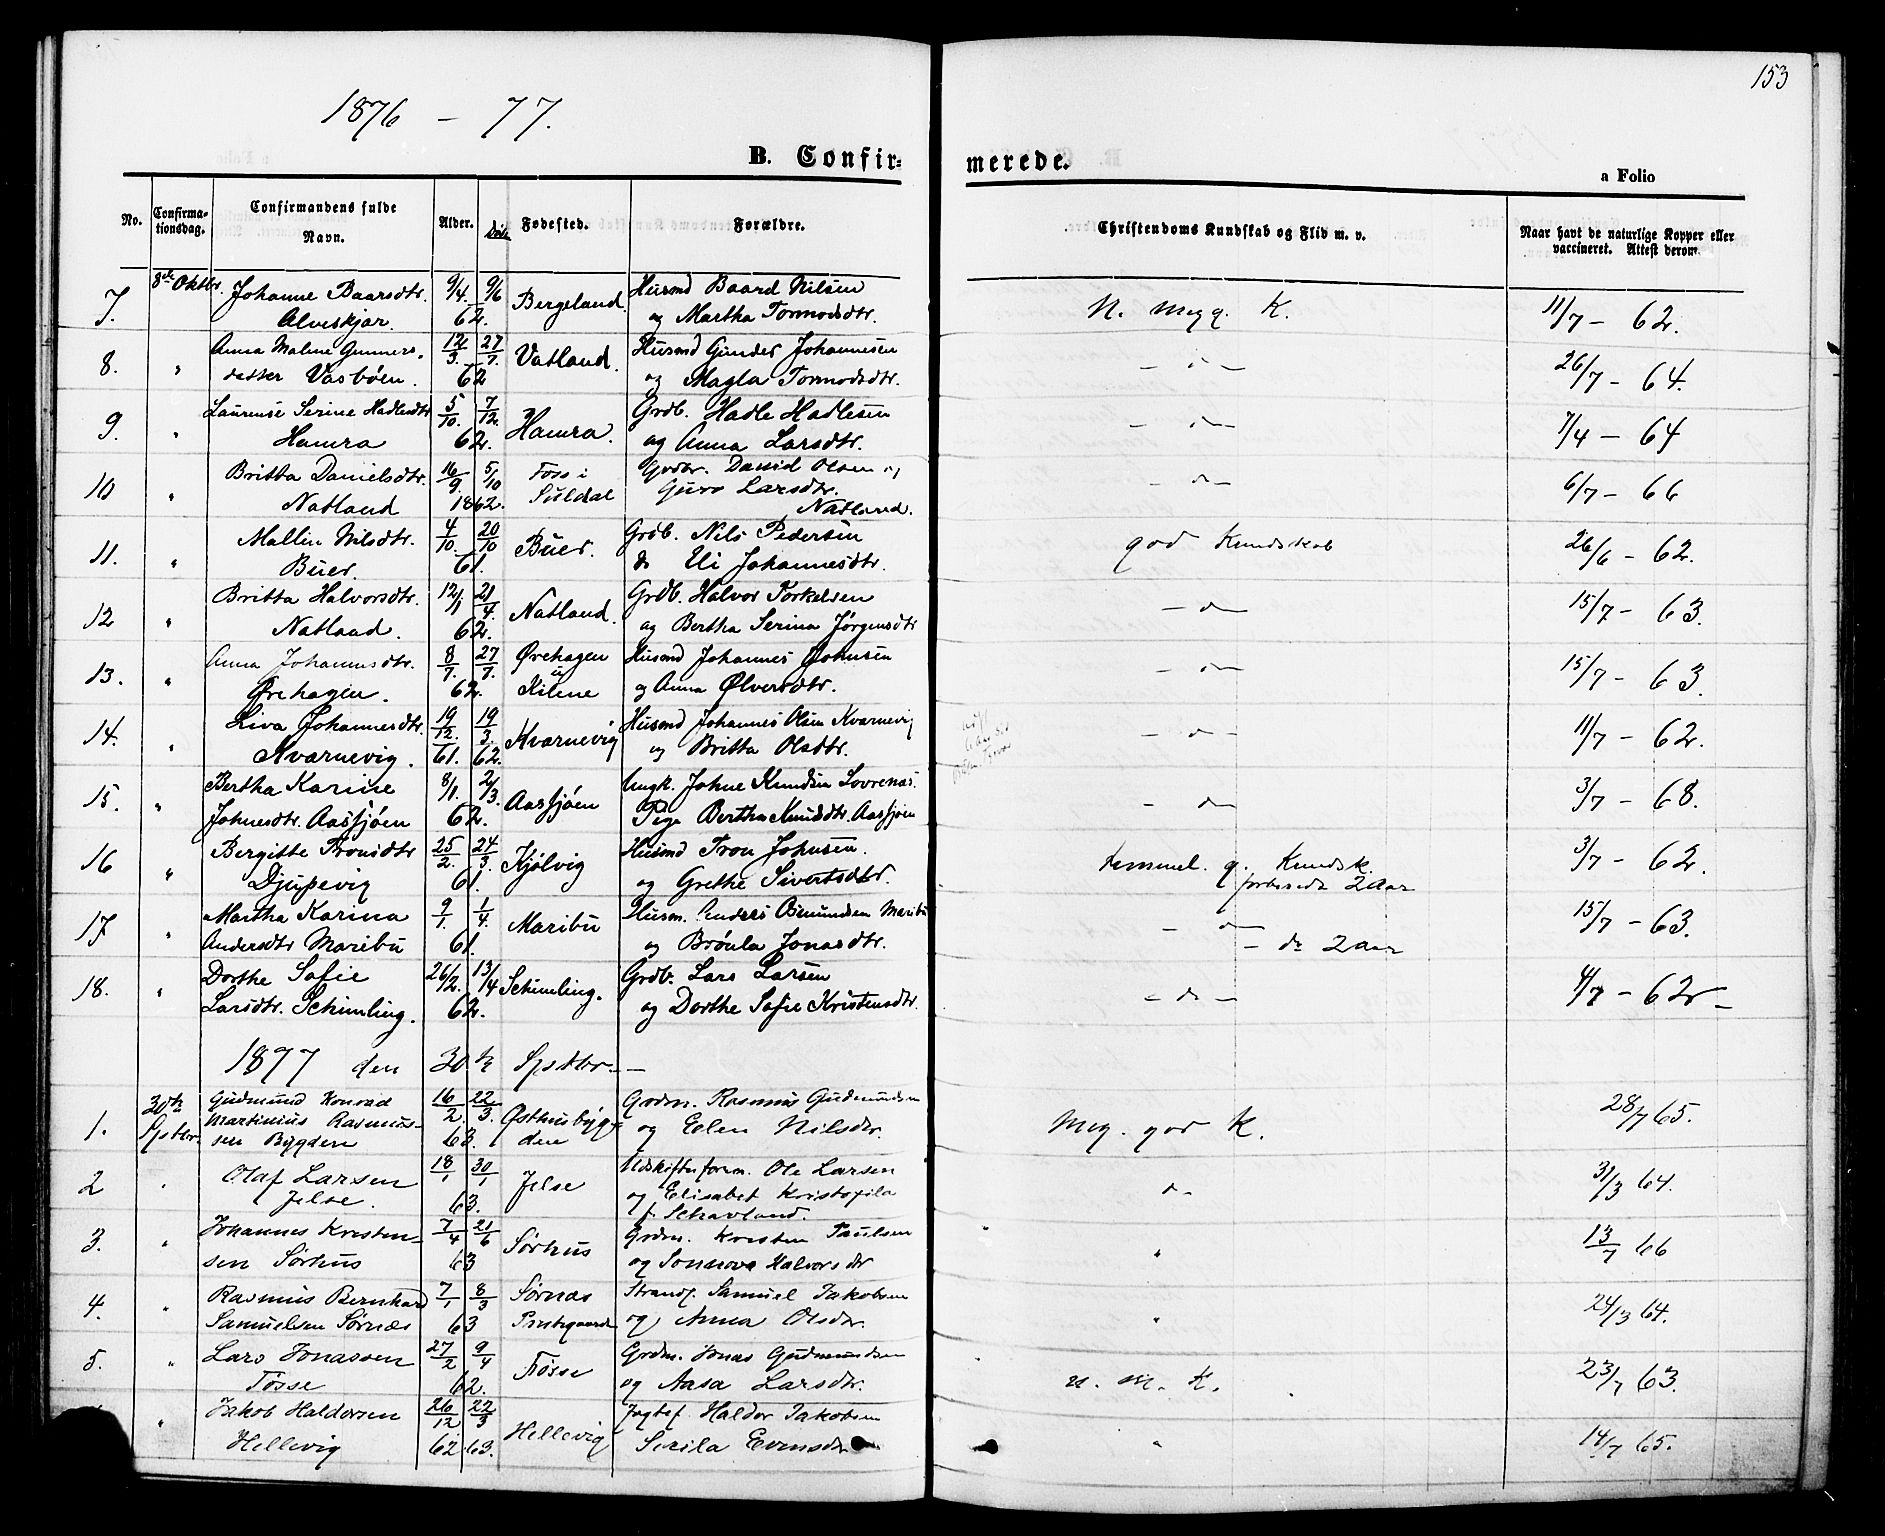 153
1876 - 77.
B. Confir= merede.
a Folio
No. Confirma-tionsdag. Confirmandens fulde Navn. Alder. Døbt Fødested. Forældre. Christendoms Kundskab og Flid m. v. Naar havt de naturlige Kopper eller vaccineret. Attest derom.
7. 8de Oktbr. Johanne Baarsdtr. 9/4. 9/6 Bergeland. Husmd Baard Nilsen N. meg g. K. 11/7 - 62.
Alveskjær. 62. og Martha Tormodsdtr.
8. " Anna Malene Gunners- 12/3. 27/7. Vatland. Husmd Gunder Johannesen - " - 26/7 - 64.
datter Vasbøen. 62 og Magla Tormodsdtr.
9. " Laurense Serine Hadlesdtr 5/10. 7/12. Hamra. Grdb. Hadle Hadlesen - do - 7/4 - 64
Hamra 62. og Anna Larsdtr.
10 " Britta Danielsdtr. 16/9. 5/10 Foss i Grdbr. Daniel Olsen og - do - 6/7 - 66
Natland 1862. Suldal Guro Larsdtr. Natland.
11. " Mallin Nilsdtr. 4/10. 20/10 Buer. Grdb. Nels Pedersen god Kundskab 26/6 - 62.
Buer. 61. & Eli Johannesdtr.
12 " Britta Halvorsdtr. 12/1 21/4 Natland. Grdb. Halvor Torkelsen - do - 15/7 - 63.
Natlaad. 62. og Bertha Serina Jørgensdtr
13. " Anna Johannesdtr. 8/7. 27/7. Ørehagen Husmd Johannes Johnsen - do - 15/7 - 63.
Ørehagen. 62. i Kilene og Anna Ølversdtr.
14. " Liva Johannesdtr. 19/12. 19/3. Kvarnevig Husmd Johannes Olsen Kvarnevig - do - 11/7 - 62.
Kvarnevig. 61. 62. og Britta Olsdtr.
15. " Bertha Karine 8/1. 2/3. Aasjøen Ungk. Johne Knudsen Lovrenæs. - do - 3/7 - 68.
Johnesdtr. Aasjøen 62. Pige Bertha Knudsdtr. Aasjøen
16 " Bergitte Tronsdtr 25/2. 24/3. Kjølvig Husmd Tron Johnsen. temmel. g. Kundsk. 3/7 - 62.
Djupevig 61. og Grethe Sivertsdtr. forberedt 2 Aar
17 " Martha Karina 9/1. 1/4. Maribu Husm. Anders Osmundsen Maribu - do - 15/7 - 63.
Andersdtr Maribu 61. og Brønla Jonasdtr. - do 2 Aar
18. " Dorthe Sofie 26/2. 13/4 Schimling. Grdb. Lars Larsen - do - 4/7 - 62 -
Larsdtr. Schimling. 62. og Dorthe Sofie Kristensdtr.
1877 den 30te Septbr. -
1. 30te Septbr. Gudmund Konrad 16/2. 22/3. Østhusbyg- Grdm. Rasmus Gudmundsen Meg. god K. 28/7 65.
Martinius Rasmus- 63. den og Elen Nilsdtr.
sen Bygden
2 " Olaf Larsen 18/1 30/1 Jelse Udskifterform. Ole Larsen do 31/3 64.
Jelse. 63. og Elisabet Kristofila
f. Schavland.
3. " Johannes Kristen- 7/4 21/6 Sørhus Grdm. Kristen Paulsen " 13/7 66
sen Sørhus 63 og Sonnova Halvorsdtr
4. " Rasmus Bernhard 7/1 8/3 Sørnæs Strands. Samuel Jakobsen " 24/3 64.
Samuelsen Sørnæs 63 og Anna Olsdtr.
5. " Lars Jonassen 27/2 9/4 Tøsse Grdm. Jonas Gudmundsen n. m. K. 23/7 63.
Tøsse 62. og Aasa Larsdtr.
" Jakob Haldorsen 26/12 22/3 Hellevig Jagtef. Haldor Jakobsen " 14/7 65.
Hellevig 62. 63. Serila Evensdtr.